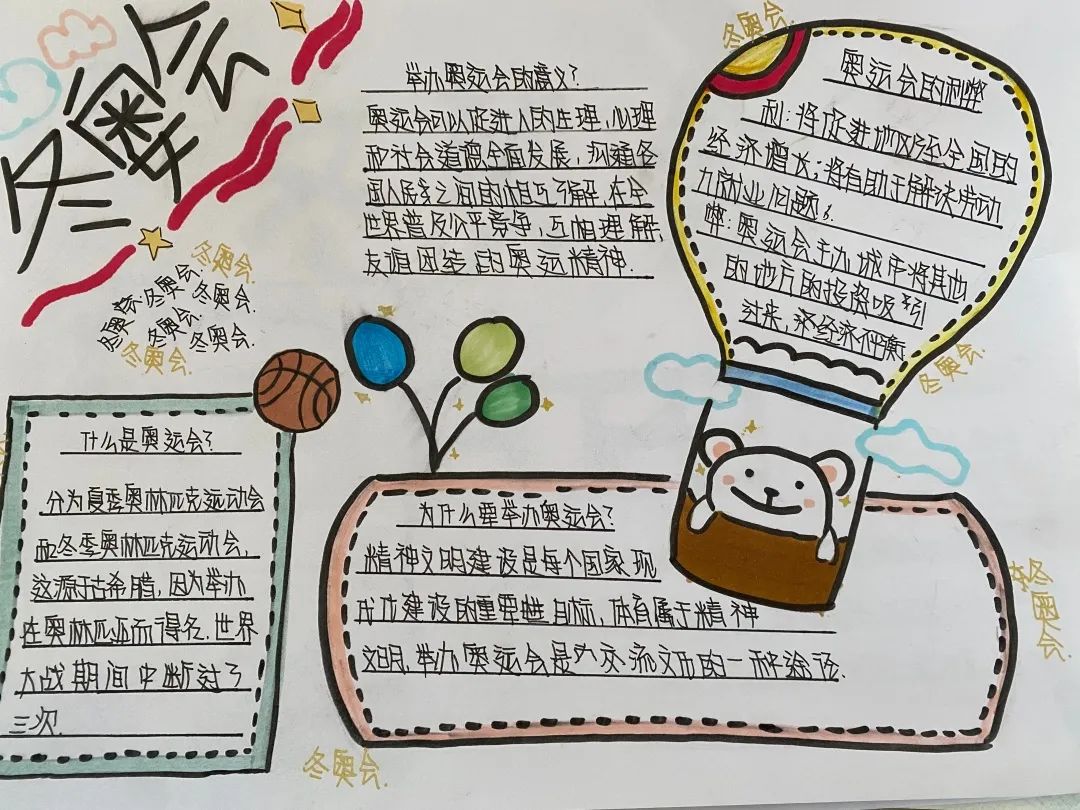 冬奥会
冬奥会.
冬奥会.
冬奥会.
冬奥会.
冬奥会.
冬奥会.
冬奥会.
举办奥运会的意义?
奥运会可以促进人的生理,心理
和社会道德全面发展,沟通各
国人民之间的相互了解,在全
世界普及公平竞争,互相理解,
友谊团结的奥运精神.
冬奥会.
奥运会的利弊
利:将促进地区乃至全国的
经济增长;将有助于解决劳动
力就业问题。
弊:奥运会主办城市将其他
的地方的投资吸引
过来,济经济不平衡
冬奥会.
什么是奥运会?
分为夏季奥林匹克运动会
和冬季奥林匹克运动会,
这源于古希腊,因为举办
在奥林匹亚而得名.世界
大战期间中断过了
三次.
为什么要举办奥运会?
精神文明建设是每个国家现
代化建设的重要性目标,体育属于精神
文明,举办奥运会是交流文化的一种途径.
冬奥会.
冬奥会.